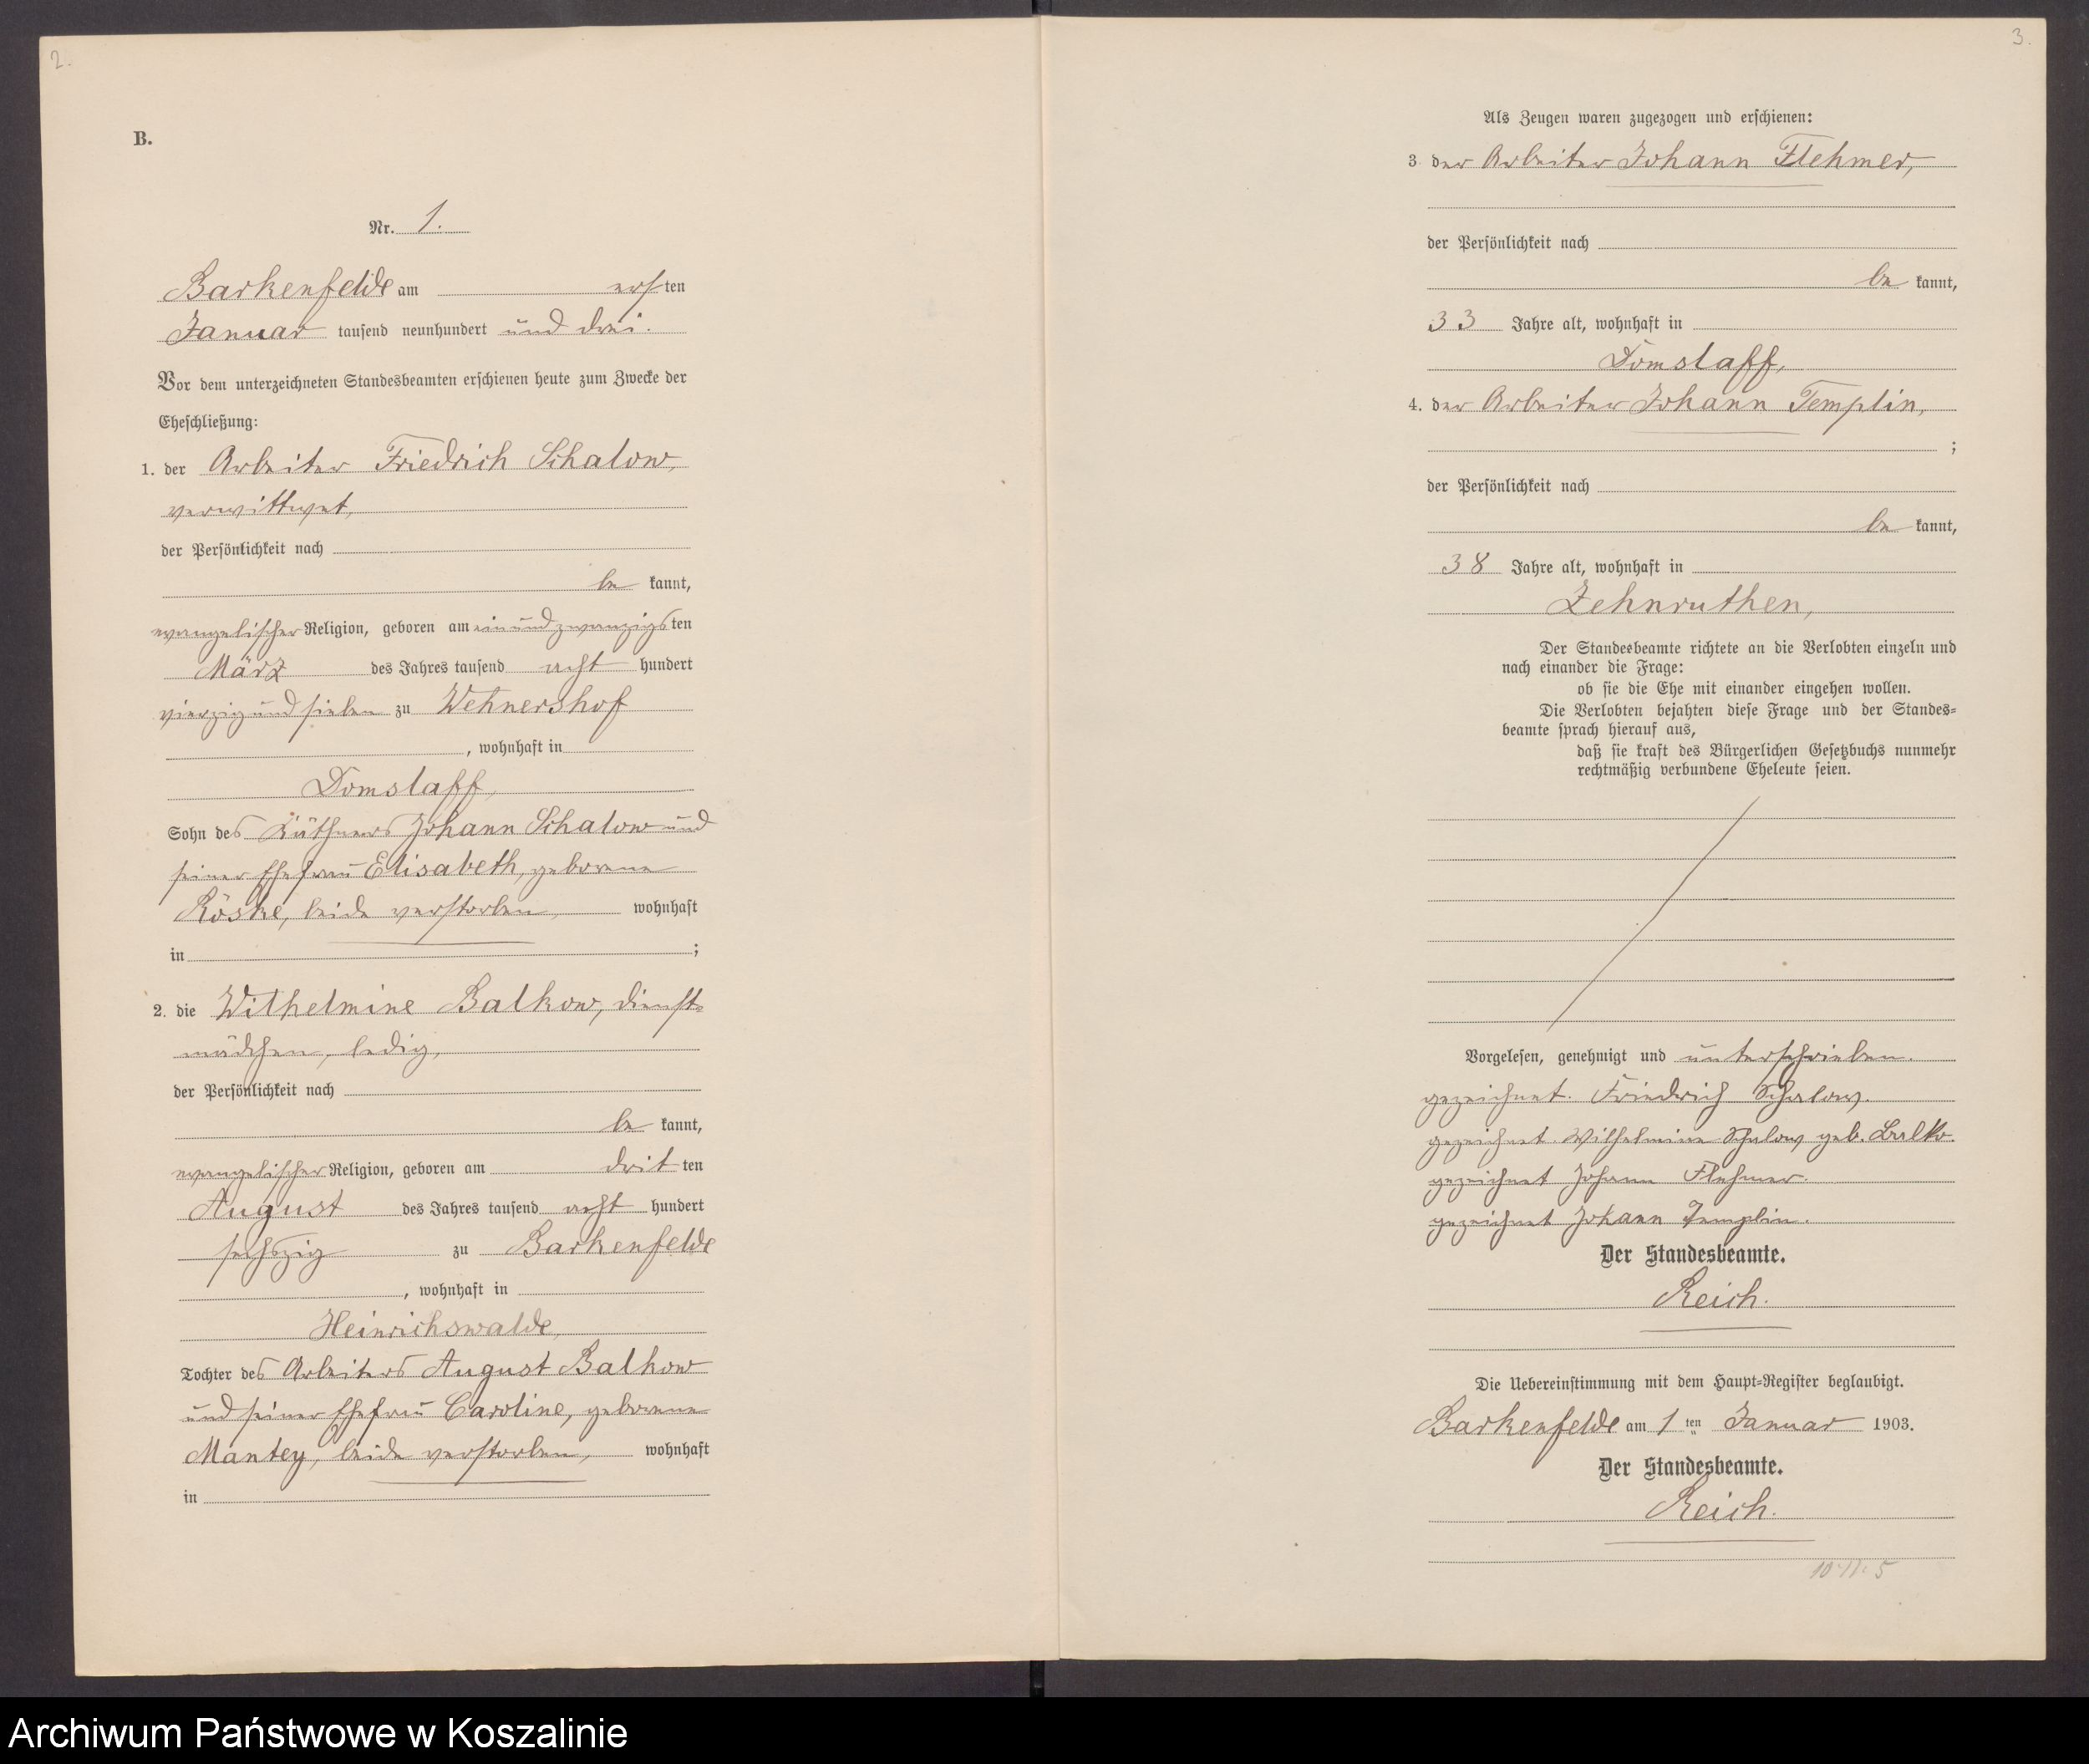 2.
B.
Nr. 1.
Barkenfelde am ersten
Januar tausend neunhundert und drei.
Vor dem unterzeichneten Standesbeamten erschienen heute zum Zwecke der
Eheschließung:
1. der Arbeiter Friedrich Schalow,
verwittwet,
der Persönlichkeit nach
be kannt,
evangelischer Religion, geboren am einundzwanzigsten
März des Jahres tausend acht hundert
vierzig und sieben zu Wehnershof
, wohnhaft in
Domslaff,
Sohn des Käthners Johann Schalow und
seiner Ehefrau Elisabeth, geborene
Röske, beide verstorben, wohnhaft
in ;
2. die Wilhelmine Balkow, Dienst-
mädchen, ledig,
der Persönlichkeit nach
be kannt,
evangelischer Religion, geboren am dritten
August des Jahres tausend acht hundert
sechszig zu Barkenfelde
, wohnhaft in
Heinrichswalde,
Tochter des Arbeiters August Balkow
und seiner Ehefrau Caroline, geborene
Mantey, beide verstorben, wohnhaft
in
3.
Als Zeugen waren zugezogen und erschienen:
3. der Arbeiter Johann Flehmer,
der Persönlichkeit nach
be kannt,
33 Jahre alt, wohnhaft in
Domslaff,
4. der Arbeiter Johann Templin,
;
der Persönlichkeit nach
be kannt,
38 Jahre alt, wohnhaft in
Zehnruthen,
Der Standesbeamte richtete an die Verlobten einzeln und
nach einander die Frage:
ob sie die Ehe mit einander eingehen wollen.
Die Verlobten bejahten diese Frage und der Standes=
beamte sprach hierauf aus,
daß sie kraft des Bürgerlichen Gesetzbuchs nunmehr
rechtmäßig verbundene Eheleute seien.
Vorgelesen, genehmigt und unterschrieben.
gezeichnet. Friedrich Schalow.
gezeichnet. Wilhelmine Schalow geb. Balko.
gezeichnet Johann Flehmer.
gezeichnet Johann Templin.
Der Standesbeamte.
Reich.
Die Uebereinstimmung mit dem Haupt=Register beglaubigt.
Barkenfelde am 1ten Januar 1903.
Der Standesbeamte.
Reich.
Archiwum Państwowe w Koszalinie